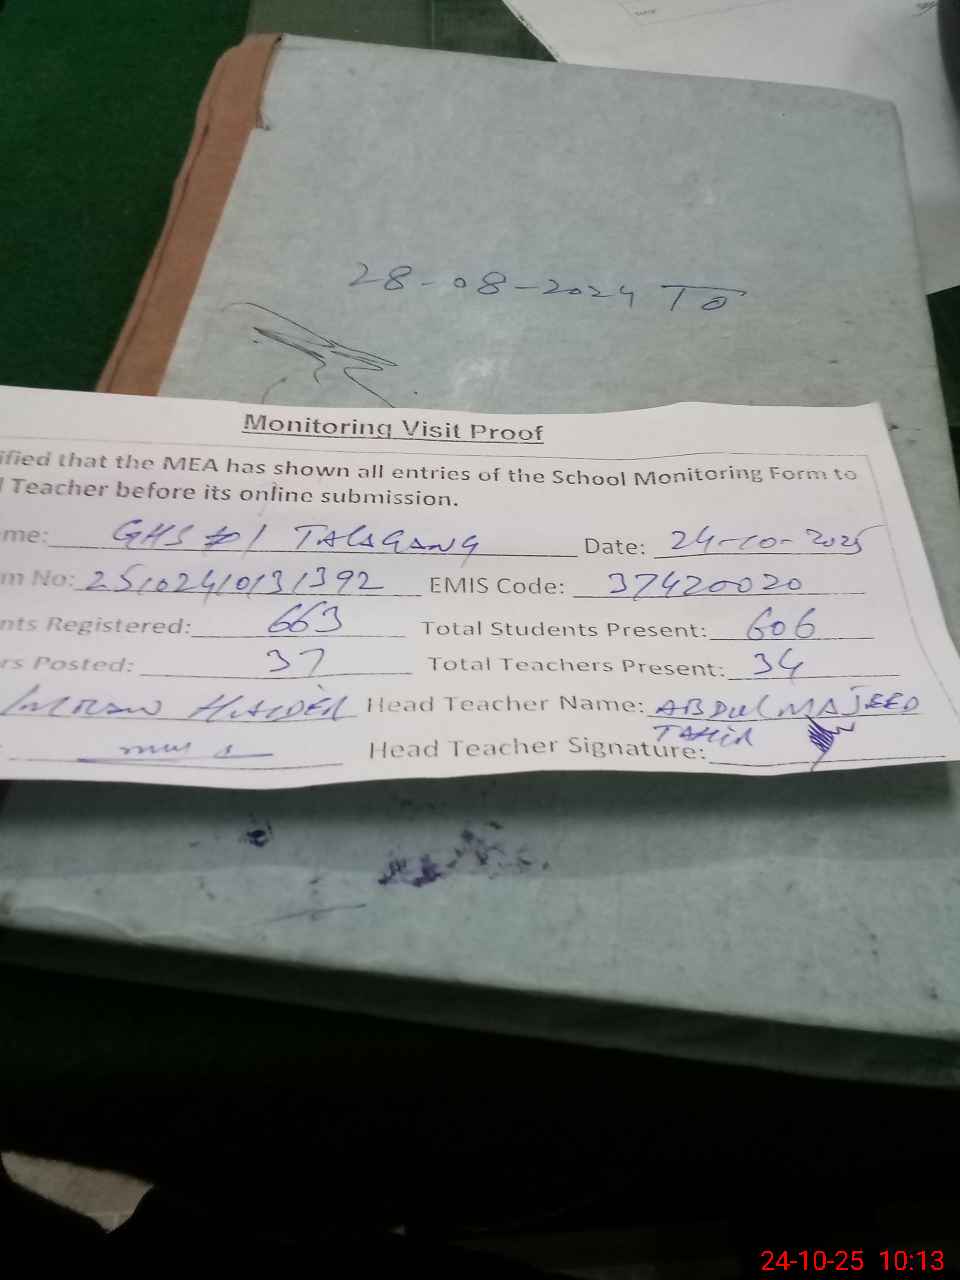 28-08-2024 TO
Monitoring Visit Proof
ified that the MEA has shown all entries of the School Monitoring Form to
l Teacher before its online submission.
me: GHS #01 TALAGANG Date: 24-10-2025
m No: 2510240131392 EMIS Code: 37420020
nts Registered: 663 Total Students Present: 606
rs Posted: 37 Total Teachers Present: 34
IMRAN HAIDER Head Teacher Name: ABDUL MAJEED
TAHIR
Head Teacher Signature:
24-10-25 10:13